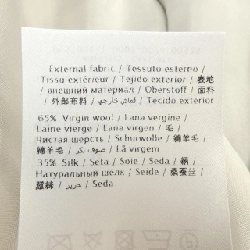 External fabric / Tessuto esterno /
Tissu extérieur / Tejido exterior / 表地
/ внешний материал / Oberstoff / 面料
/ 外部布料 / قماش خارجي / Tecido exterior
65% Virgin wool / Lana vergine /
Laine vierge / Lana virgen / 毛 /
Чистая шерсть / Schurwolle / 綿羊毛 /
綿羊毛 / صوف بكر / Lã virgem
35% Silk / Seta / Soie / Seda / 絹 /
Натуральный шелк / Seide / 桑蚕丝 /
حرير / Seda